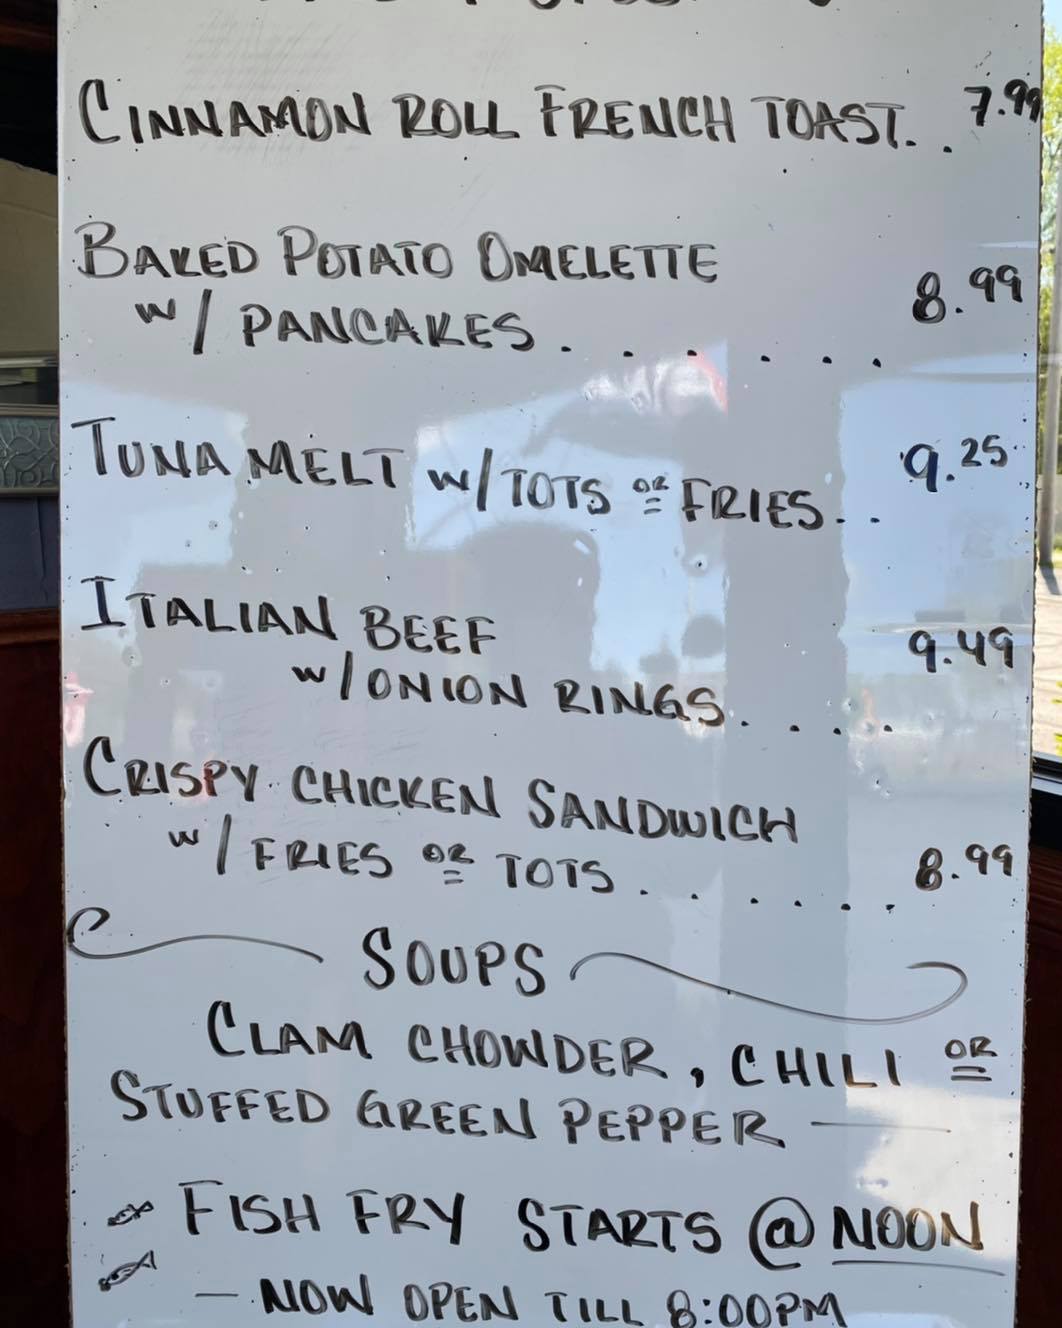 CINNAMON ROLL FRENCH TOAST.. 7.99
BAKED POTATO OMELETTE
w/ PANCAKES . . . . . . 8.99
TUNA MELT w/ TOTS OR FRIES.. 9.25
ITALIAN BEEF
w/ ONION RINGS. . . . 9.49
CRISPY CHICKEN SANDWICH
w/ FRIES OR TOTS . . . . . . 8.99
SOUPS
CLAM CHOWDER, CHILI OR
STUFFED GREEN PEPPER —
FISH FRY STARTS @ NOON
— NOW OPEN TILL 8:00PM